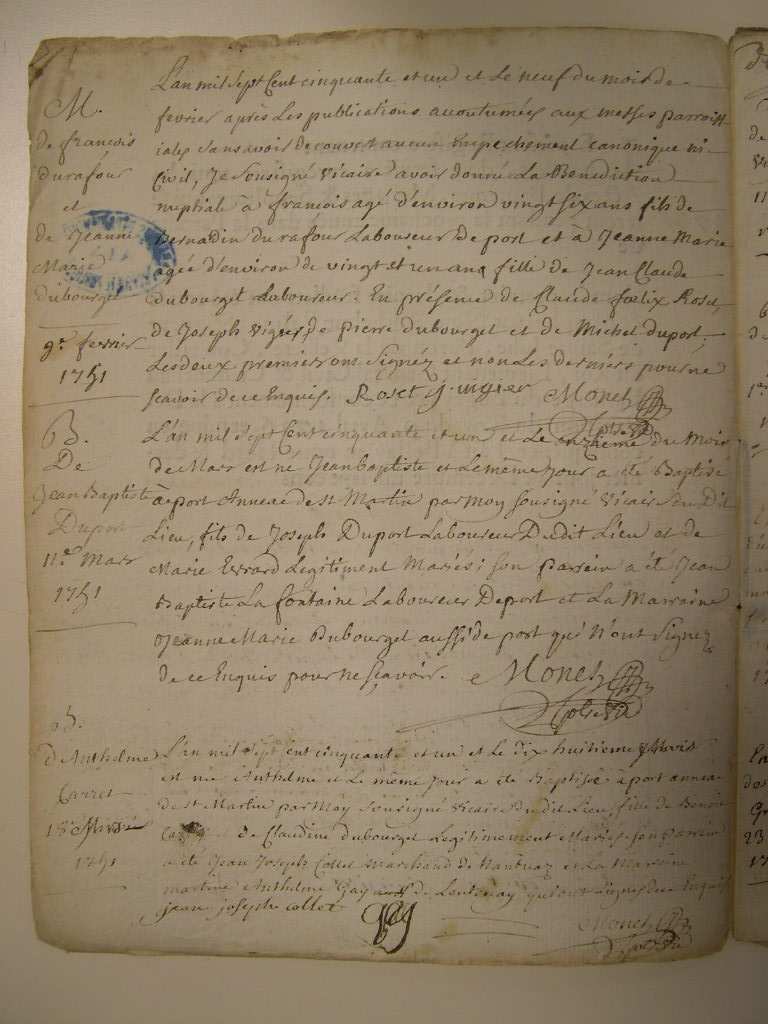 M.
de françois
durafour
et
de Jeanne
Marie
dubourget
9e fevrier
1751
L'an mil sept Cent cinquante et un et Le neuf du mois de
fevrier après Les publications acoutumées aux messes parroiss
iales sans avoir decouvert aucun Empechement canonique ni
Civil, Je sousigné vicaire avoir donné La Benediction
nuptiale à françois agé d'environ vingt six ans fils de
Bernadin durafour Laboureur De port et à Jeanne Marie
agée d'environ de vingt et un ans fille de Jean Claude
dubourget Laboureur. En présence de Claude fœlix Roset,
de Joseph vigier, de pierre dubourget et de Michel duport,
Les deux premiers ont signéz et non Les derniers pour ne
scavoir de ce Enquis. Roset j. vugier Monet
B.
De
Jean Baptiste
Duport
11e Mars
1751
L'an mil sept Cent cinquante et un et Le onzieme du Mois
de Mars est né Jean baptiste et Le même Jour a été Baptisé
à port Annexe de st Martin par moy sousigné vicaire Du Dit
Lieu, fils de Joseph Duport Laboureur Dudit Lieu et de
Marie Evrard Legitiment Mariés; son parrein a été Jean
Baptiste La fontaine Laboureur Deport et La Marraine
Jeanne Marie Dubourget aussi de port qui n'ont signéz
de ce Enquis pour ne scavoir. Monet
B.
d'Anthelme
Carret
18e Mars
1751
L'an mil sept cent cinquante et un et Le dix huitieme Mars
est née Anthelme et Le même Jour a été Baptisée à port annexe
de st Martin par Moy sousigné vicaire du dit Lieu, fille de Benoit
et de Claudine dubourget Legitimement Mariés son parrein
a été Jean Joseph Collet Marchand de Nantua et La Marreine
martine Anthelme Gay de Lentenay qui ont signés de ce Enquis
jean joseph collet
Monet